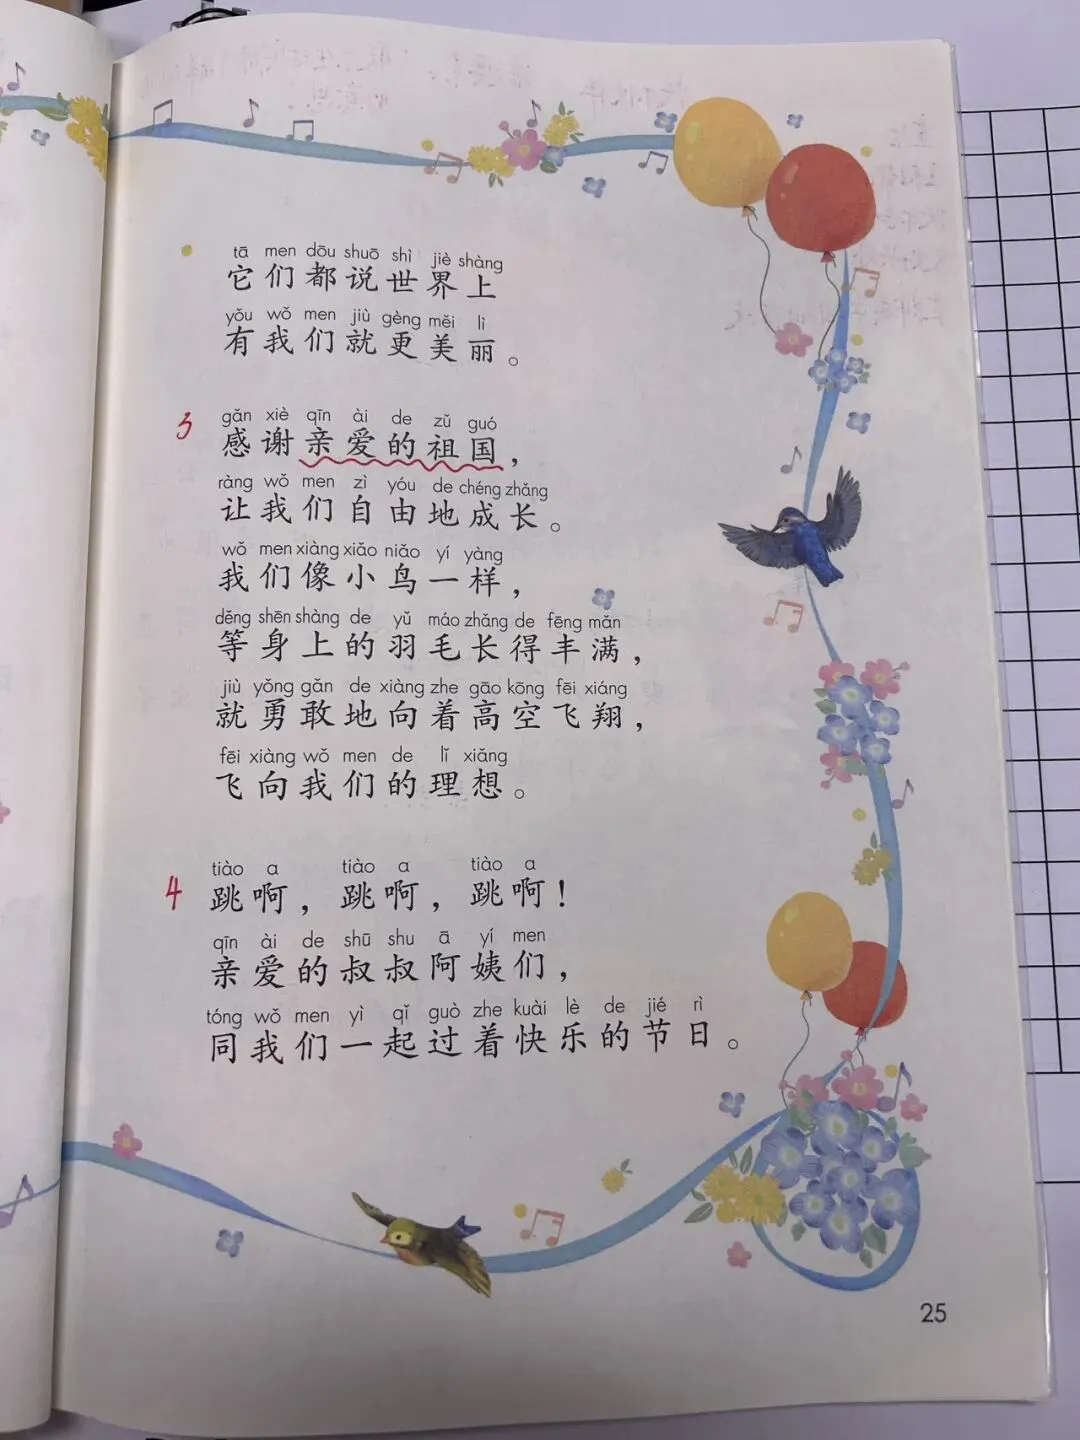 tā men dōu shuō shì jiè shàng
它们都说世界上
yǒu wǒ men jiù gèng měi lì
有我们就更美丽。
gǎn xiè qīn ài de zǔ guó
3 感谢亲爱的祖国，
ràng wǒ men zì yóu de chéng zhǎng
让我们自由地成长。
wǒ men xiàng xiǎo niǎo yí yàng
我们像小鸟一样，
děng shēn shàng de yǔ máo zhǎng de fēng mǎn
等身上的羽毛长得丰满，
jiù yǒng gǎn de xiàng zhe gāo kōng fēi xiáng
就勇敢地向着高空飞翔，
fēi xiàng wǒ men de lǐ xiǎng
飞向我们的理想。
tiào a tiào a tiào a
4 跳啊，跳啊，跳啊！
qīn ài de shū shu ā yí men
亲爱的叔叔阿姨们，
tóng wǒ men yì qǐ guò zhe kuài lè de jié rì
同我们一起过着快乐的节日。
25